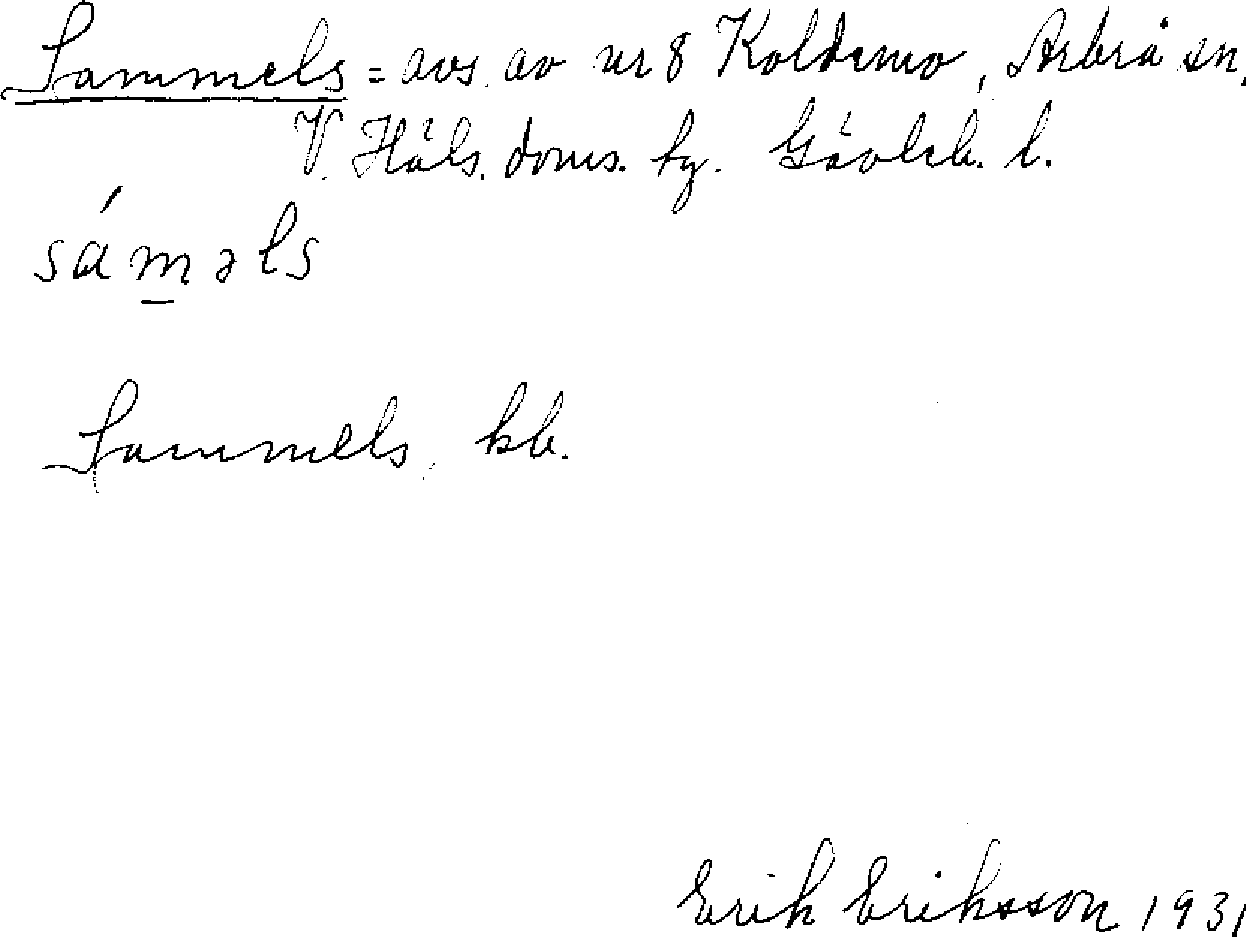 Sammels = avs. av nr 8 Koldemo, Arbrå sn,
V. Häls. doms. hg. Gävleb. l.
sám̲əls
Sammels, kb.
Erik Eriksson 1931